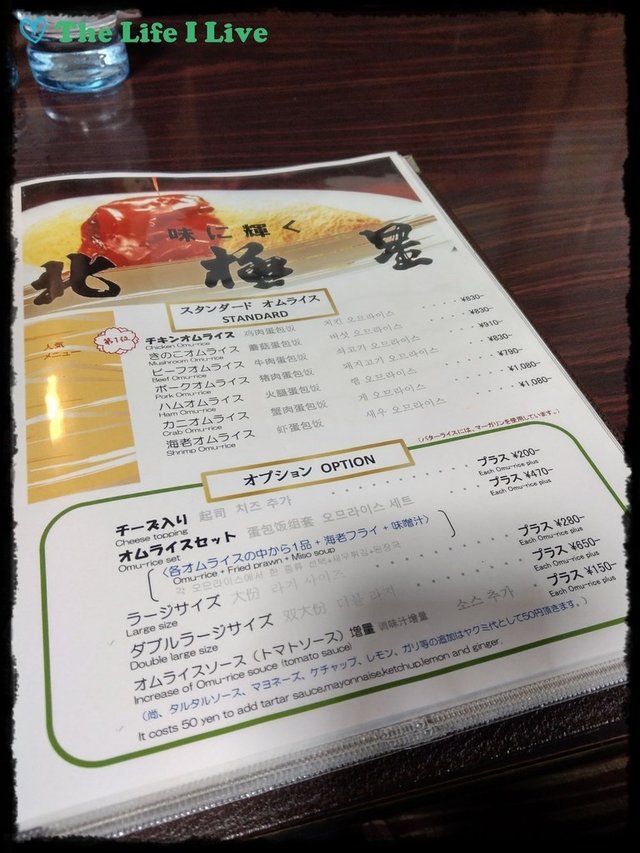 The Life I Live
味に輝く
北極星
スタンダード オムライス
STANDARD
人気
メニュー
第1位
チキンオムライス 鸡肉蛋包饭 치킨 오므라이스 ¥830-
Chicken Omu-rice
きのこオムライス 蘑菇蛋包饭 버섯 오므라이스 ¥830-
Mushroom Omu-rice
ビーフオムライス 牛肉蛋包饭 쇠고기 오므라이스 ¥910-
Beef Omu-rice
ポークオムライス 猪肉蛋包饭 돼지고기 오므라이스 ¥830-
Pork Omu-rice
ハムオムライス 火腿蛋包饭 햄 오므라이스 ¥790-
Ham Omu-rice
カニオムライス 蟹肉蛋包饭 게 오므라이스 ¥1,080-
Crab Omu-rice
海老オムライス 虾蛋包饭 새우 오므라이ス ¥1,080-
Shrimp Omu-rice
(バターライスには、マーガリンを使用しています。)
オプション OPTION
チーズ入り 起司 치즈 추가 プラス ¥200-
Cheese topping Each Omu-rice plus
オムライスセット 蛋包饭组套 오므라이스 세트 プラス ¥470-
Omu-rice set Each Omu-rice plus
(各オムライスの中から1品 + 海老フライ + 味噌汁)
Omu-rice + Fried prawn + Miso soup
각 오므라이스에서 한 종류 선택+새우튀김+된장국
ラージサイズ 大份 라지 사이즈 プラス ¥280-
Large size Each Omu-rice plus
ダブルラージサイズ 双大份 더블 라지 プラス ¥650-
Double large size Each Omu-rice plus
オムライスソース (トマトソース) 増量 调味汁增量 소스 추가 プラス ¥150-
Increase of Omu-rice souce (tomato sauce) Each Omu-rice plus
(尚、タルタルソース、マヨネーズ、ケチャップ、レモン、ガリ等の追加はヤクミ代として50円頂きます。)
It costs 50 yen to add tartar sauce,mayonnaise,ketchup,lemon and ginger.